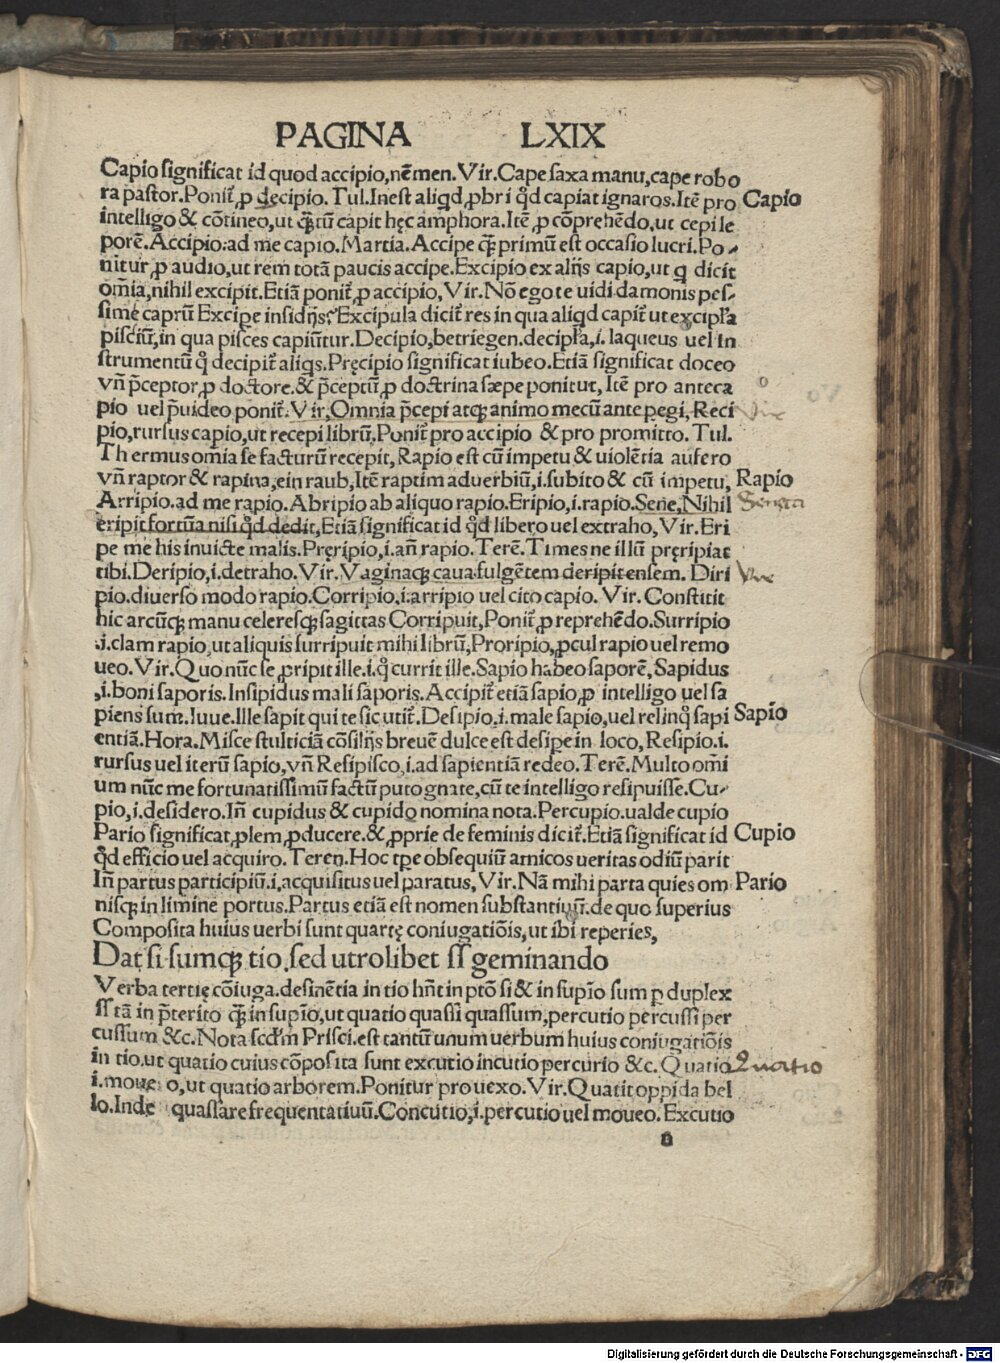 PAGINA LXIX
Capio significat id quod accipio,nē men. Vir. Cape saxa manu, cape robo
ra pastor. Ponit̄ ꝓ decipio. Tul. Inest aliqd ꝓbri qd̄ capiat ignaros. Itē pro Capio
intelligo & cōtineo, ut qƷtū capit hęc amphora. Itē ꝓ cōprehēdo, ut cepi le
porē. Accipio: ad me capio. Martia. Accipe qƷ primū est occasio lucri. Po⸗
nitur ꝓ audio, ut rem totā paucis accipe. Excipio ex alijs capio, ut q dicit
oīa, nihil excipit. Etiā ponit̄ ꝓ accipio, Vir. Nō ego te uidi damonis pes⸗
sime caprū Excipe insidijs: Excipula dicit̄ res in qua aliqd capit̄ ut excipl̄a
pisciū, in qua pisces capiūtur. Decipio, betriegen. decipl̄a, i. laqueus uel in
strumentū q̊ decipit̄ aliqs. Pręcipio significat iubeo. Etiā significat doceo
vn̄ p̄ceptor ꝓ doctore. & p̄ceptū ꝓ doctrina sæpe ponitut, Itē pro anteca
pio uel p̄uideo ponit̄. Vir, Omnia p̄cepi atqƷ animo mecū ante pegi, Reci Vir
pio, rursus capio, ut recepi librū, Ponit̄ pro accipio & pro promitto. Tul.
Th ermus omīa se facturū recepit, Rapio est cū impetu & uiolētia aufero
vn̄ raptor & rapina, ein raub, Itē raptim aduerbiū, i. subito & cū impetu, Rapio
Arripio. ad me rapio. Abripio ab aliquo rapio. Eripio, i. rapio. Sene, Nihil Seneca
eripit fortūa nisi qd̄ dedit, Etiā significat id qd̄ libero uel extraho, Vir. Eri
pe me his inuicte malis. Pręripio, i. an̄ rapio. Terē. Times ne illū pręripiat
tibi. Deripio, i. detraho. Vir. VaginaqƷ caua fulgētem deripit ensem. Diri Vir
pio. diuerso modo rapio. Corripio, i: arripio uel cito capio. Vir. Constitit
hic arcūqƷ manu celeresqƷ sagittas Corripuit, Ponit̄ ꝓ reprehēdo. Surripio
.i. clam rapio, ut aliquis surripuit mihi librū, Proripio, ꝓcul rapio uel remo
ueo. Vir. Quo nūc se ꝓripit ille. i. q̊ currit ille. Sapio habeo saporē, Sapidus
,i. boni saporis. Insipidus mali saporis. Accipit̄ etiā sapio, ꝓ intelligo uel sa
piens sum. Iuue. Ille sapit qui te sic utit̄. Desipio, i. male sapio, uel relinq̊ sapi Sapio
entiā. Hora. Misce stulticiā cōsilijs breuē dulce est desipe in loco, Resipio. i.
rursus uel iterū sapio, vn̄ Resipisco, i. ad sapientiā redeo. Terē. Multo omī
um nūc me fortunatissimū factū puto gnate, cū te intelligo resipuisse. Cu⸗
pio, i. desidero. In̄ cupidus & cupido nomina nota. Percupio. ualde cupio
Pario significat ꝓlem ꝓducere. & ꝓprie de feminis dicit̄. Etiā significat id Cupio
qd̄ efficio uel acquiro. Teren. Hoc tpe obsequiū amicos ueritas odiū parit
In̄ partus participiū. i, acquisitus uel paratus, Vir. Nā mihi parta quies om Pario
nisqƷ in limine portus. Partus etiā est nomen substantiuū. de quo superius
Composita huius uerbi sunt quartę coniugatiōis, ut ibi reperies,
Dat si sumqƷ tio, sed utrolibet ss geminando
Verba tertię cōiuga. desinētia in tio hn̄t in ptō si & in supīo sum p duplex
ss tā in p̄terito qƷ in supīo, ut quatio quassi quassum, percutio percussi per
cussum &c. Nota scd̄m Prisci. est tantū unum uerbum huius coniugatiōis
in tio. ut quatio cuius cōposita sunt excutio incutio percurio &c. Quatio Quatio
i. moue o, ut quatio arborem. Ponitur pro uexo. Vir. Quatit oppida bel
lo. Inde quassare frequentatiuū. Concutio, i. percutio uel moueo. Excutio
n
Digitalisierung gefördert durch die Deutsche Forschungsgemeinschaft - DFG